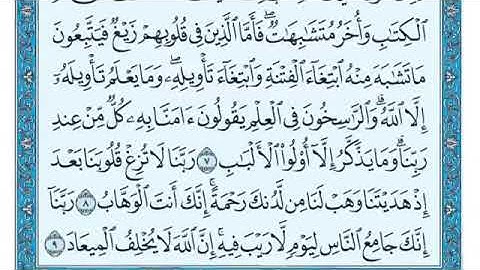 ٱلْكِتَٰبِ وَأُخَرُ مُتَشَٰبِهَٰتٌ ۖ فَأَمَّا ٱلَّذِينَ فِى قُلُوبِهِمْ زَيْغٌ فَيَتَّبِعُونَ
مَا تَشَٰبَهَ مِنْهُ ٱبْتِغَآءَ ٱلْفِتْنَةِ وَٱبْتِغَآءَ تَأْوِيلِهِۦ ۗ وَمَا يَعْلَمُ تَأْوِيلَهُۥٓ
إِلَّا ٱللَّهُ ۗ وَٱلرَّٰسِخُونَ فِى ٱلْعِلْمِ يَقُولُونَ ءَامَنَّا بِهِۦ كُلٌّ مِّنْ عِندِ
رَبِّنَا ۗ وَمَا يَذَّكَّرُ إِلَّآ أُو۟لُوا۟ ٱلْأَلْبَٰبِ ٧ رَبَّنَا لَا تُزِغْ قُلُوبَنَا بَعْدَ
إِذْ هَدَيْتَنَا وَهَبْ لَنَا مِن لَّدُنكَ رَحْمَةً ۚ إِنَّكَ أَنتَ ٱلْوَهَّابُ ٨ رَبَّنَآ
إِنَّكَ جَامِعُ ٱلنَّاسِ لِيَوْمٍ لَّا رَيْبَ فِيهِ ۚ إِنَّ ٱللَّهَ لَا يُخْلِفُ ٱلْمِيعَادَ ٩